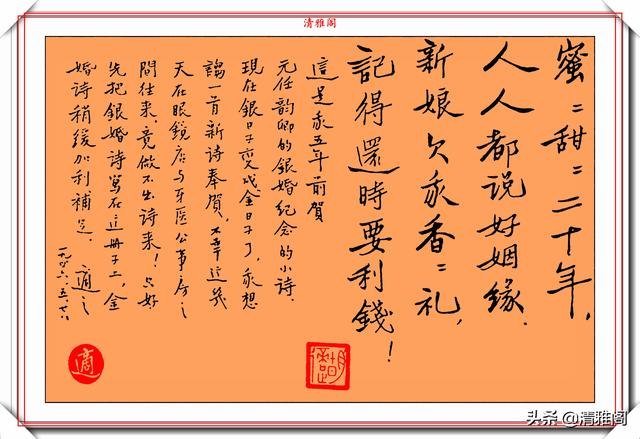 清雅阁
蜜=甜=二十年,
人人都说好姻缘.
新娘欠我香=礼,
記得還時要利錢!
這是我五年前賀
元任韵卿的銀婚紀念的小诗.
現在銀日子变成金日子了,我想
謅一首新诗奉賀,不幸这幾
天在眼鏡店与牙医公事房之
間往来,竟做不出诗来!只好
先把銀婚诗寫在这册子上,金
婚诗稍缓加利補足. 適之
一九四六、五、
適
头条 @清雅阁